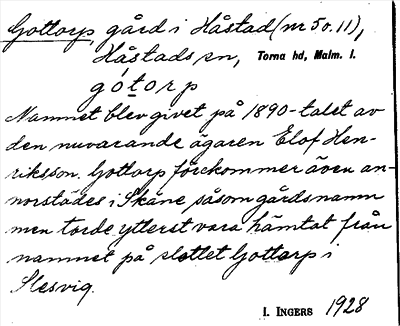 Gottorp, gård i Håstad (nr 50. 11),
Håstads sn, Torna hd, Malm. l.
gótorp
Namnet blev givet på 1890-talet av
den nuvarande ägaren Elof Hen-
riksson. Gottorp förekommer även an-
norstädes i Skåne såsom gårdsnamn
men torde ytterst vara hämtat från
namnet på slottet Gottorp i
Slesvig.
I. INGERS 1928